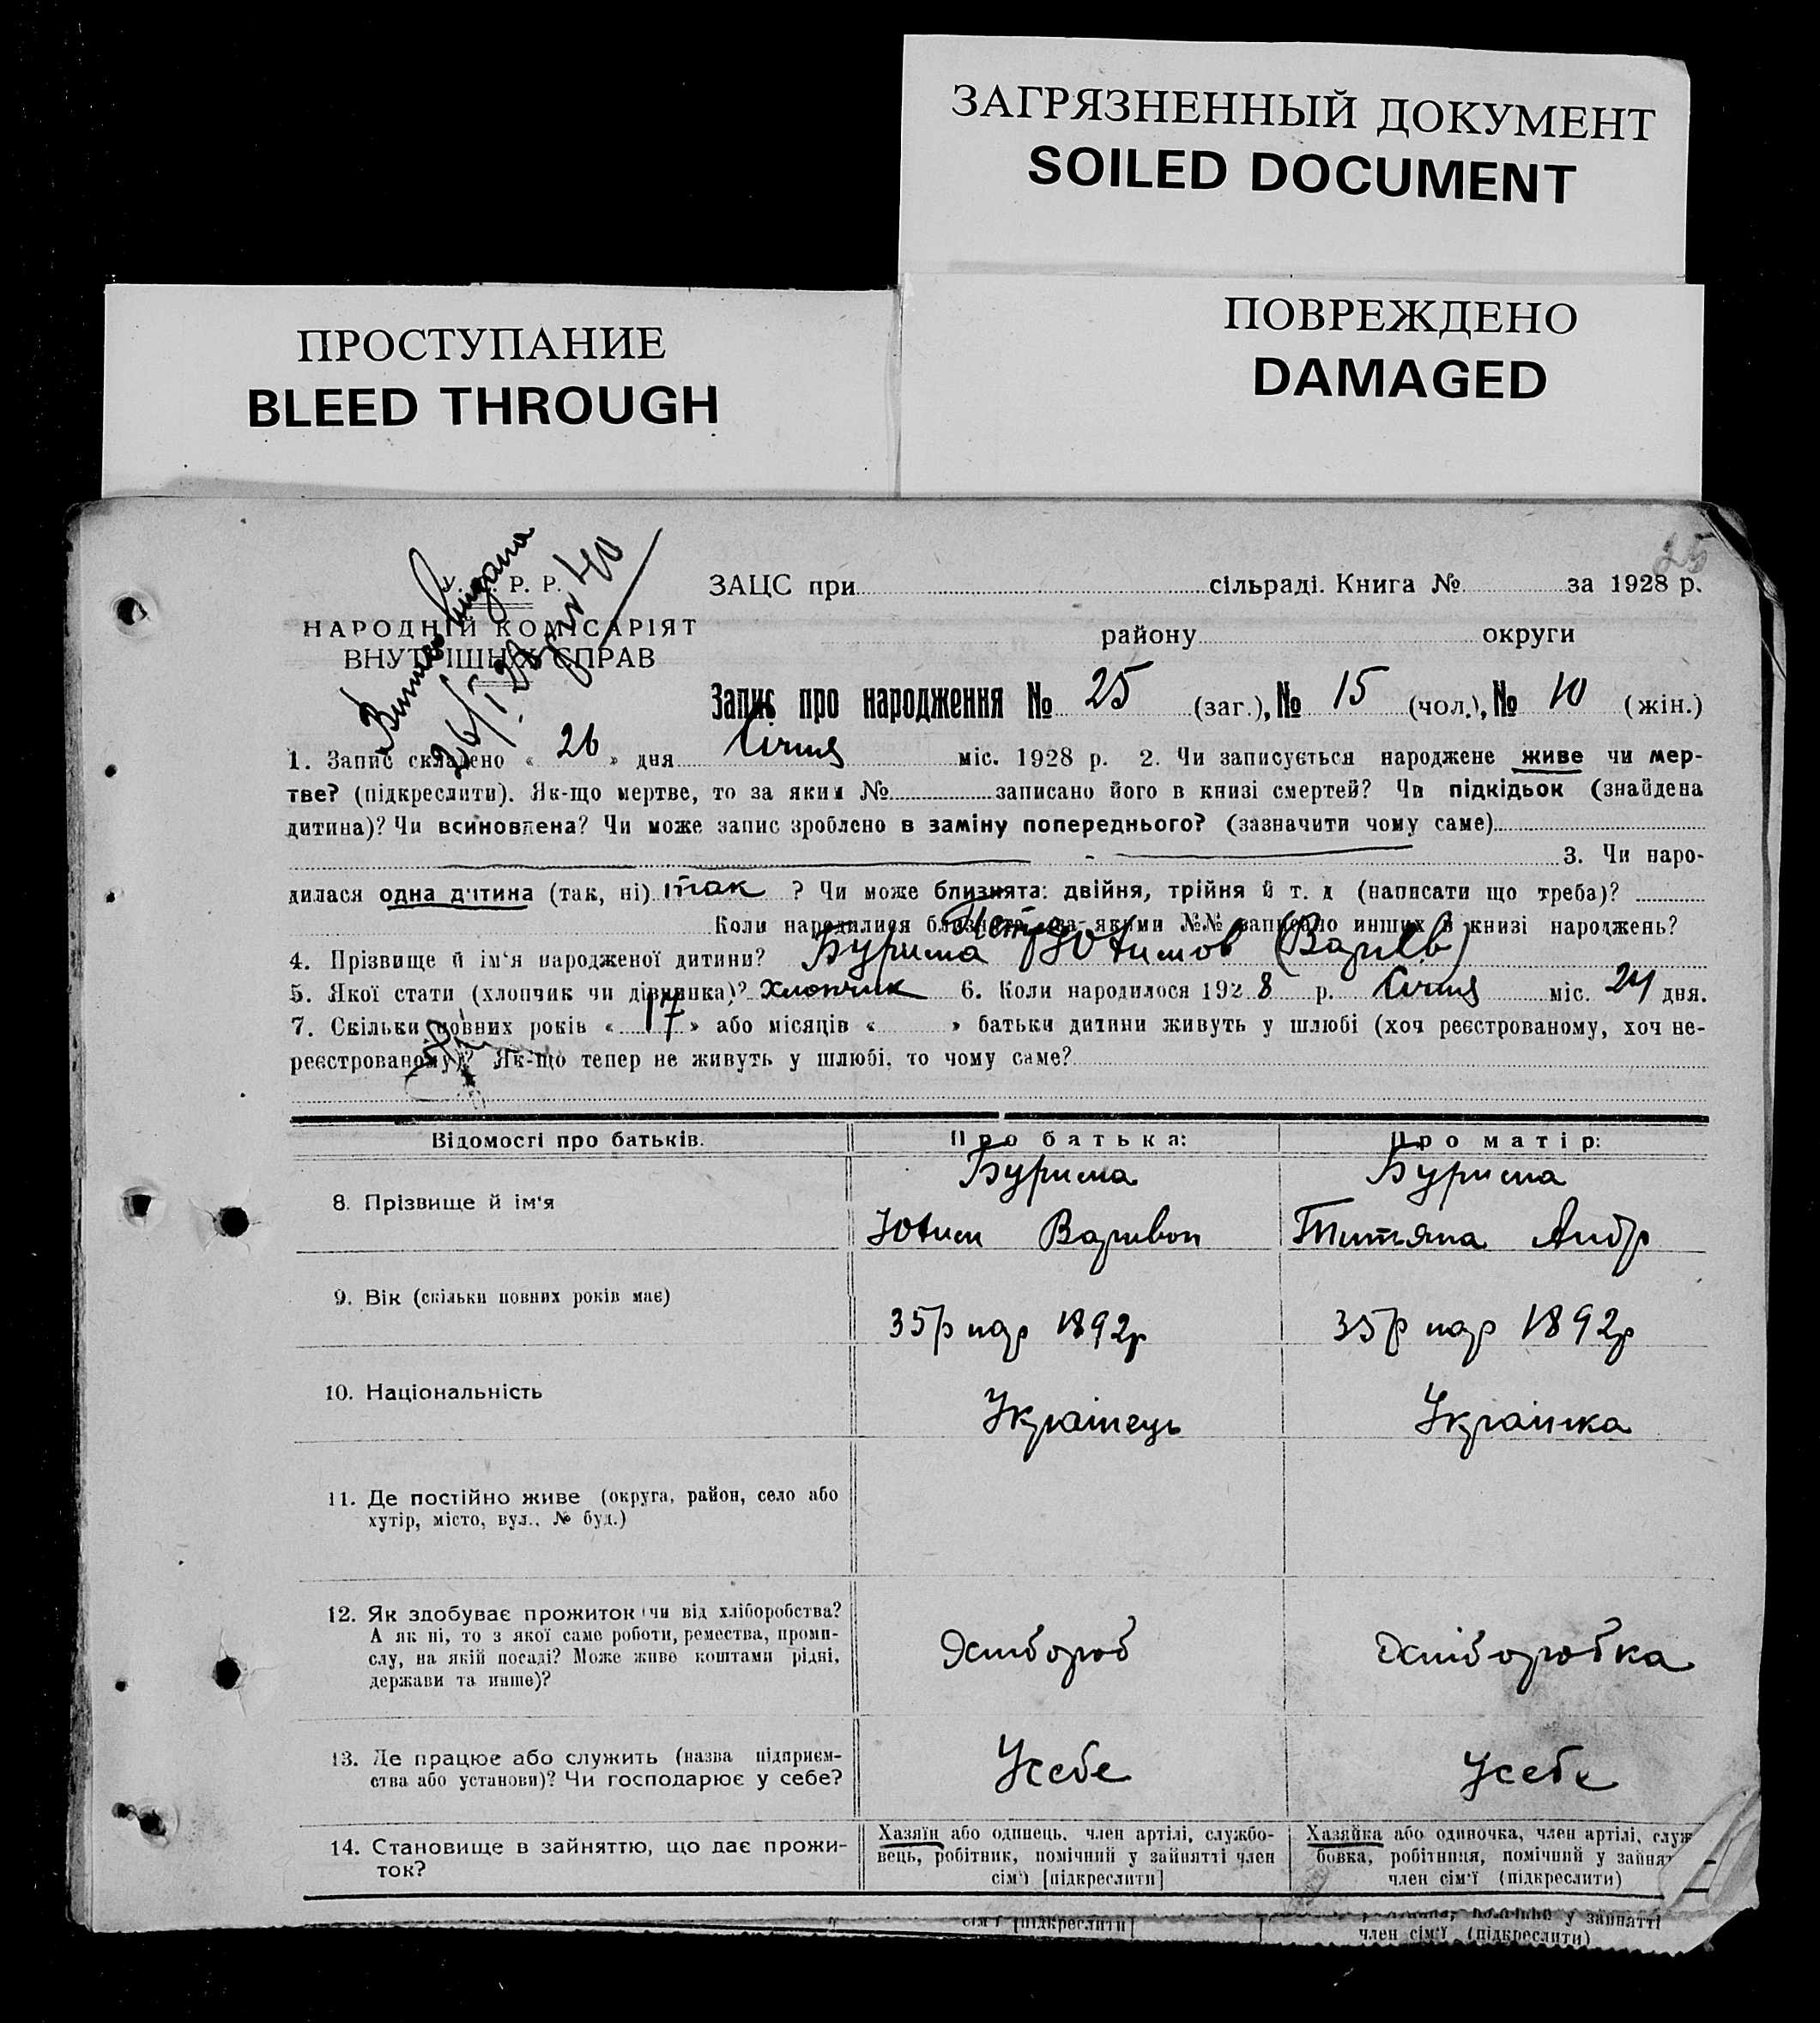 ЗАГРЯЗНЕННЫЙ ДОКУМЕНТ
SOILED DOCUMENT
ПРОСТУПАНИЕ
BLEED THROUGH
ПОВРЕЖДЕНО
DAMAGED
25
Р. Р.
НАРОДНІЙ КОМІСАРІЯТ
ВНУТРІШНІХ СПРАВ
26/I 28
ЗАЦС при сільраді. Книга № за 1928 р.
району округи
Запис про народження № 25 (заг.), № 15 (чол.), № 10 (жін.)
1. Запис складено « 26 » дня Січня міс. 1928 р. 2. Чи записується народжене живе чи мер-
тве? (підкреслити). Як-що мертве, то за яким № записано його в книзі смертей? Чи підкідьок (знайдена
дитина)? Чи всиновлена? Чи може запис зроблено в заміну попереднього? (зазначити чому саме)
3. Чи наро-
дилася одна дитина (так, ні) так ? Чи може близнята: двійня, трійня й т. д (написати що треба)?
Коли народилися близнята, за якими №№ записано инших в книзі народжень?
4. Прізвище й ім'я народженої дитини? Бурима Петро Ютимов (Варив)
5. Якої стати (хлопчик чи дівчинка)? хлопчик 6. Коли народилося 1928 р. Січня міс. 24 дня.
7. Скільки повних років « 17 » або місяців « » батьки дитини живуть у шлюбі (хоч реєстрованому, хоч не-
реєстрованому)? Як-що тепер не живуть у шлюбі, то чому саме?
Відомості про батьків. Про батька: Про матір:
8. Прізвище й ім'я
Бурима
Ютим Варивон
Бурима
Титяна Андр
9. Вік (скільки повних років має)
35 р нар 1892р
35 р нар 1892р
10. Національність
Українець
Українка
11. Де постійно живе (округа, район, село або
хутір, місто, вул., № буд.)
12. Як здобуває прожиток чи від хліборобства?
А як ні, то з якої саме роботи, ремества, проми-
слу, на якій посаді? Може живе коштами рідні,
держави та инше)?
Хлібороб
Хліборобка
13. Де працює або служить (назва підприєм-
ства або установи)? Чи господарює у себе?
Усебе
Усебе
14. Становище в зайняттю, що дає прожи-
ток?
Хазяїн або одинець, член артілі, службо-
вець, робітник, помічний у зайнятті член
сім'ї [підкреслити]
Хазяйка або одиночка, член артілі, служ
бовка, робітниця, помічний у зайнят
член сім'ї (підкреслити)
сім'ї [підкреслити]
у зайнятті
член сім'ї (підкреслити)